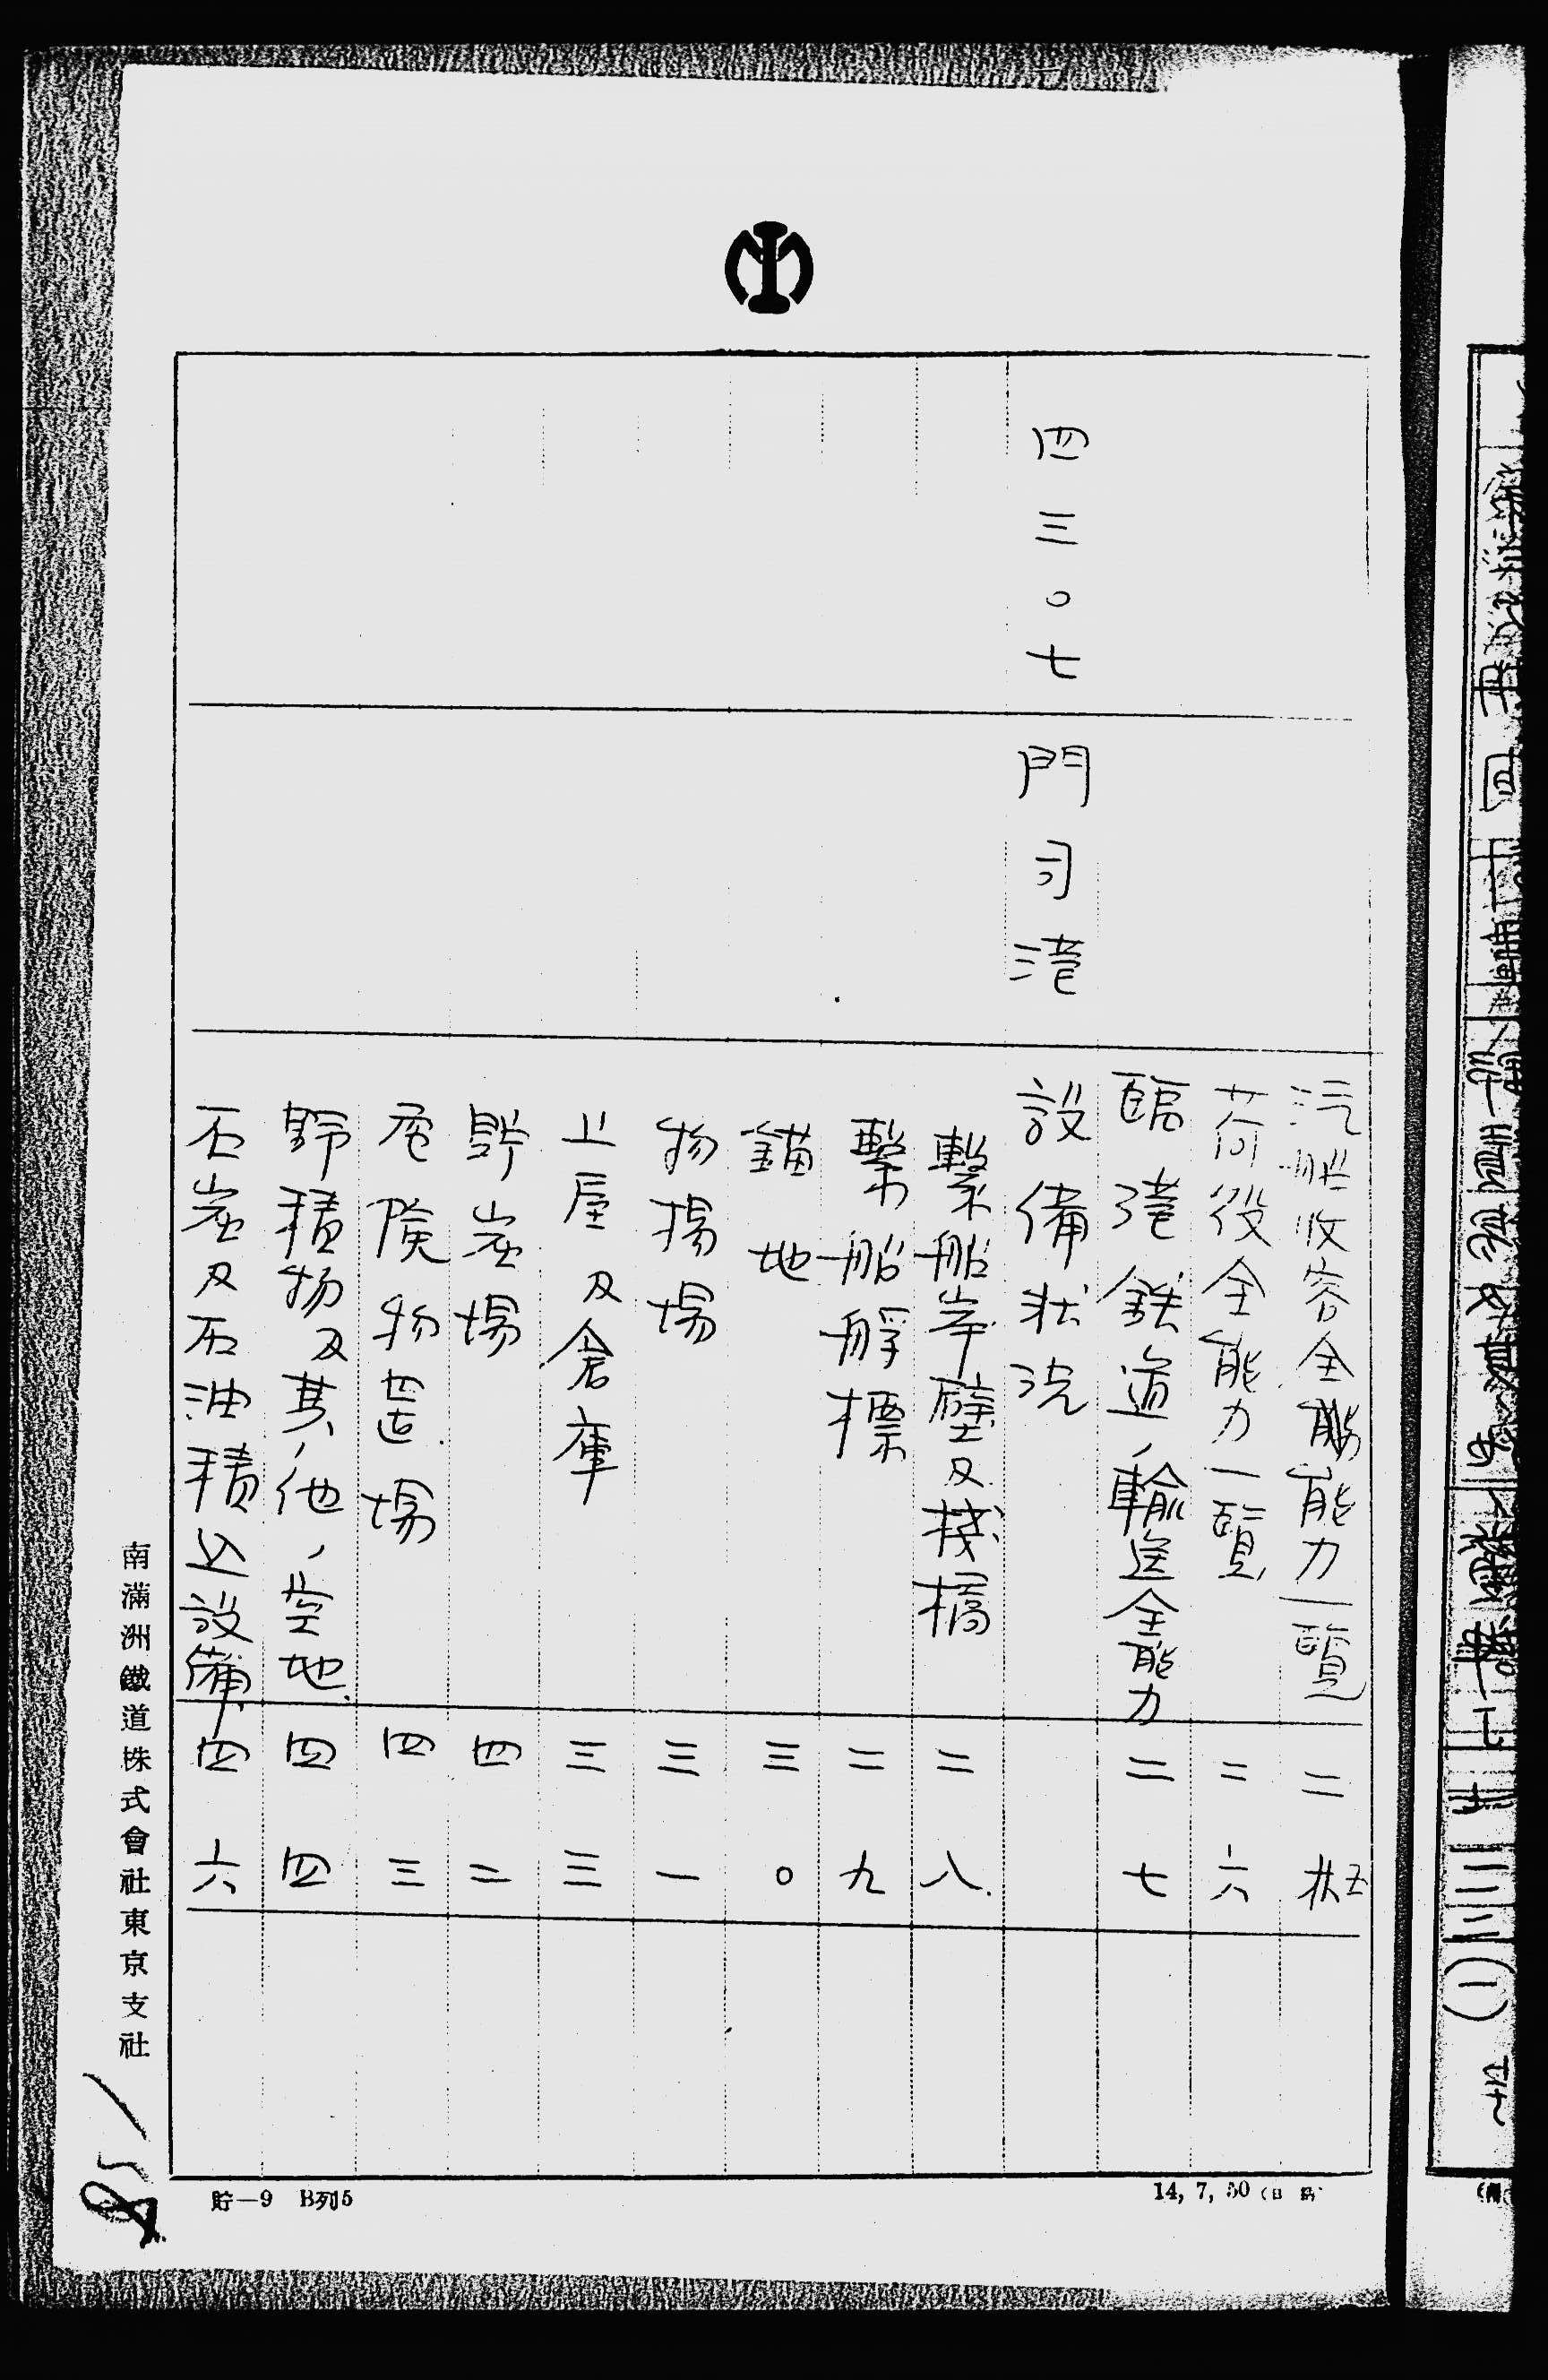 汽船收容全能力一覧 二五
荷役全能力一覧 二六
臨港鉄道ノ輸送全能力 二七
四三〇七 門司港 設備状況
繋船岸壁及棧橋 二八
繋船浮標 二九
錨地 三〇
物揚場 三一
上屋及倉庫 三三
貯炭場 四二
危険物置場 四三
野積物及其ノ他ノ空地 四四
石炭及石油積込設備 四六
南滿洲鐵道株式會社東京支社
貯—9 B列5
14, 7,